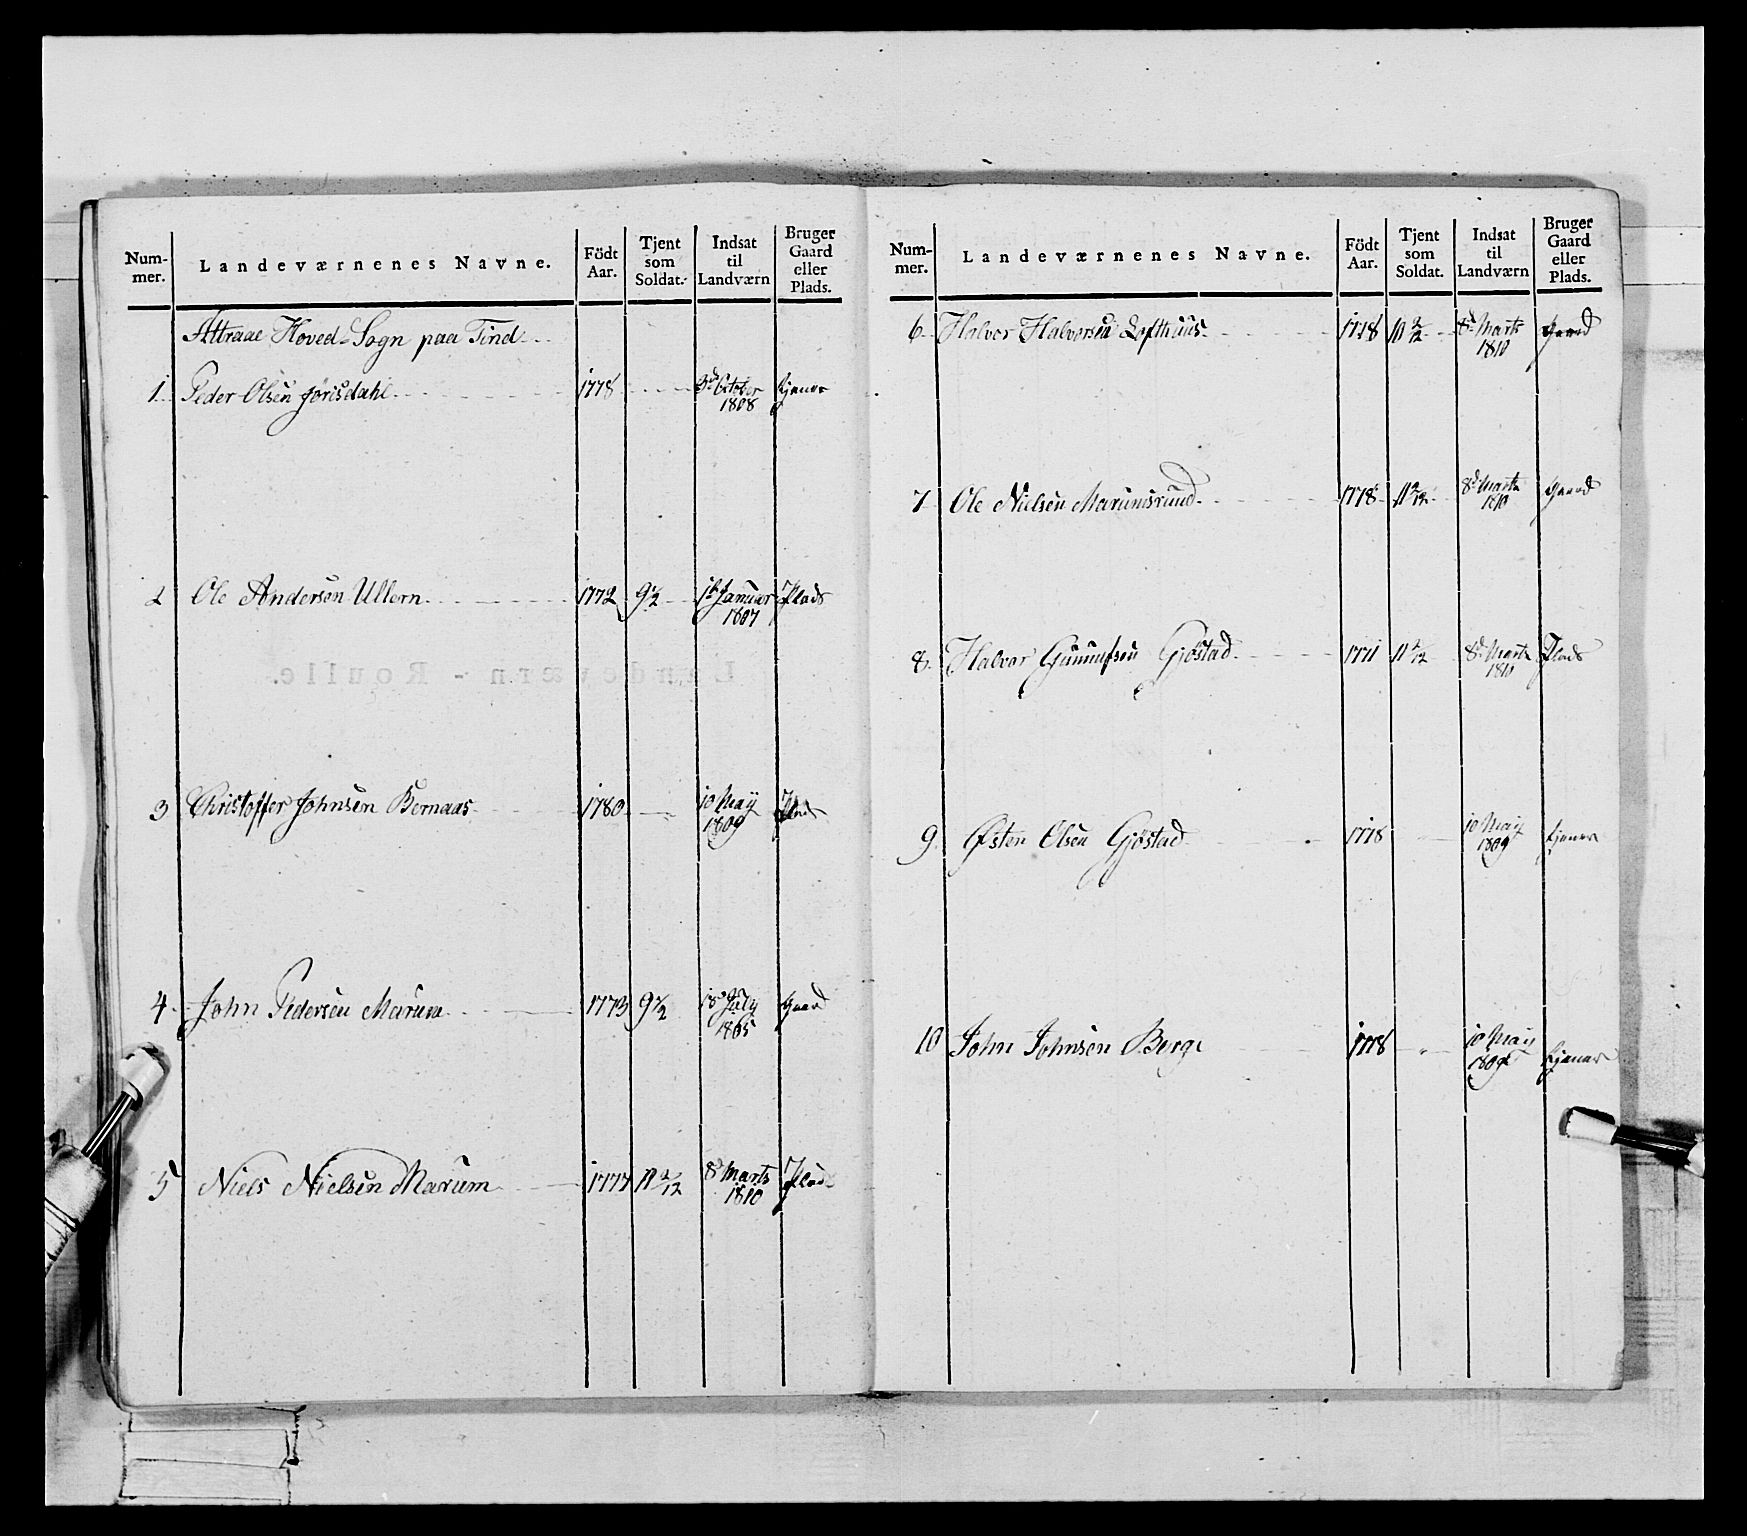 Num-
mer.
Landeværnenes Navne.
Födt
Aar.
Tjent
som
Soldat.
Indsat
til
Landværn
Bruger
Gaard
eller
Plads.
Attraae Hoved-Sogn paa Tind
1. Peder Olsen Jørisdahl 1778 3d October tjener
1808
2 Ole Andersen Ullern 1772 9½ Januar Plads
1807
3 Christoffer Johnsen Bernaas 1780 10 May Plads
1809
4. John Pedersen Marum 1773 9½ 18 July Gaard
1805
5 Niels Nielsen Marum 1777 11 2/12 8d Marts Plads
1810
Num-
mer.
Landeværnenes Navne.
Födt
Aar.
Tjent
som
Soldat.
Indsat
til
Landværn
Bruger
Gaard
eller
Plads.
6 Halvor Halvorsen Lofthuus 1778 11 2/12 8d Marts Gaard
1810
7 Ole Nielsen Marumsruud 1778 11 2/12 8d Marts Gaard
1810
8. Halvor Gunnufsen Gjøstad 1771 11 2/12 8d Marts Plads
1810
9 Østen Olsen Gjøstad 1778 10 May tjener
1809
10 John Johnsen Berge 1778 10 May tjener
1809
Landeværn-Roulle.